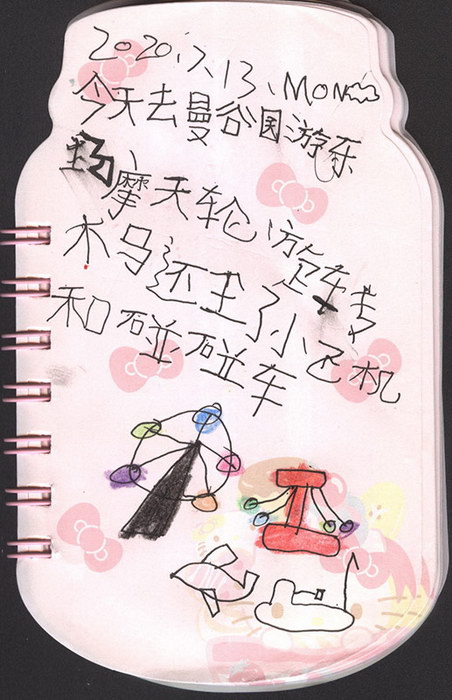 2020.7.13、MON
今天去曼谷园游乐
场、摩天轮、旋转
木马还主了小飞机
和碰碰车